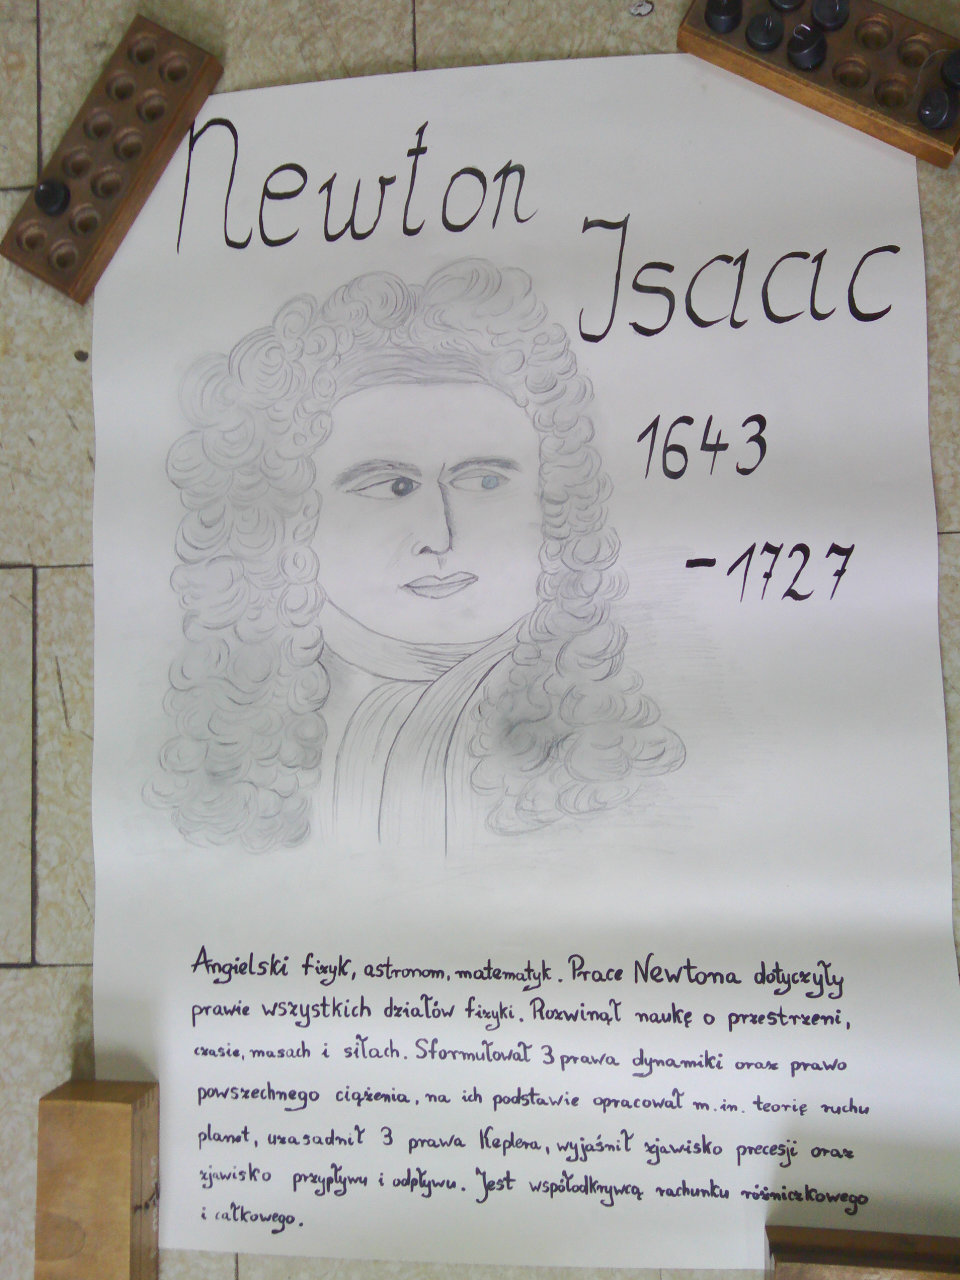 Newton
Isaac
1643
-1727
Angielski fizyk, astronom, matematyk. Prace Newtona dotyczyły
prawie wszystkich działów fizyki. Rozwinął naukę o przestrzeni,
czasie, masach i siłach. Sformułował 3 prawa dynamiki oraz prawo
powszechnego ciążenia, na ich podstawie opracował m.in. teorię ruchu
planet, uzasadnił 3 prawa Keplera, wyjaśnił zjawisko precesji oraz
zjawisko przypływu i odpływu. Jest współodkrywcą rachunku różniczkowego
i całkowego.